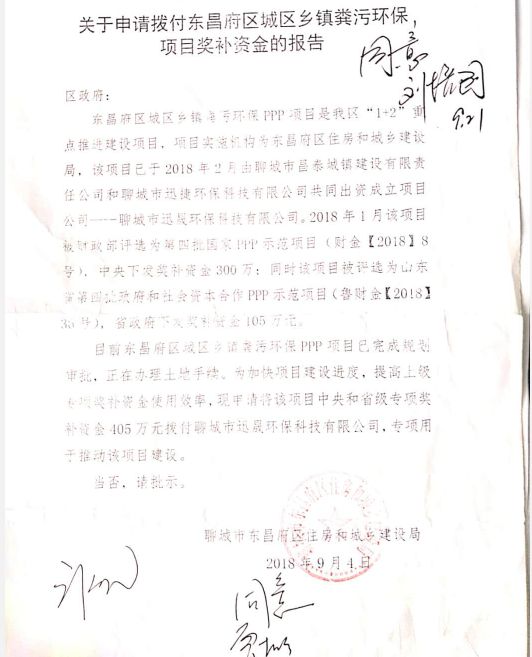 关于申请拨付东昌府区城区乡镇粪污环保,
项目奖补资金的报告
同意
9.21
区政府:
东昌府区城区乡镇粪污环保 PPP 项目是我区“1+2”重
点推进建设项目,项目实施机构为东昌府区住房和城乡建设
局,该项目已于 2018 年 2 月由聊城市昌泰城镇建设有限责
任公司和聊城市迅捷环保科技有限公司共同出资成立项目
公司——聊城市迅晟环保科技有限公司。2018 年 1 月该项目
被财政部评选为第四批国家 PPP 示范项目(财金【2018】8
号),中央下发奖补资金 300 万;同时该项目被评选为山东
省第四批政府和社会资本合作 PPP 示范项目(鲁财金【2018】
35 号),省政府下发奖补资金 105 万元。
目前东昌府区城区乡镇粪污环保 PPP 项目已完成规划
审批,正在办理土地手续。为加快项目建设进度,提高上级
专项奖补资金使用效率,现申请将该项目中央和省级专项奖
补资金 405 万元拨付聊城市迅晟环保科技有限公司,专项用
于推动该项目建设。
当否,请批示。
聊城市东昌府区住房和城乡建设局
2018 年 9 月 4 日
同意